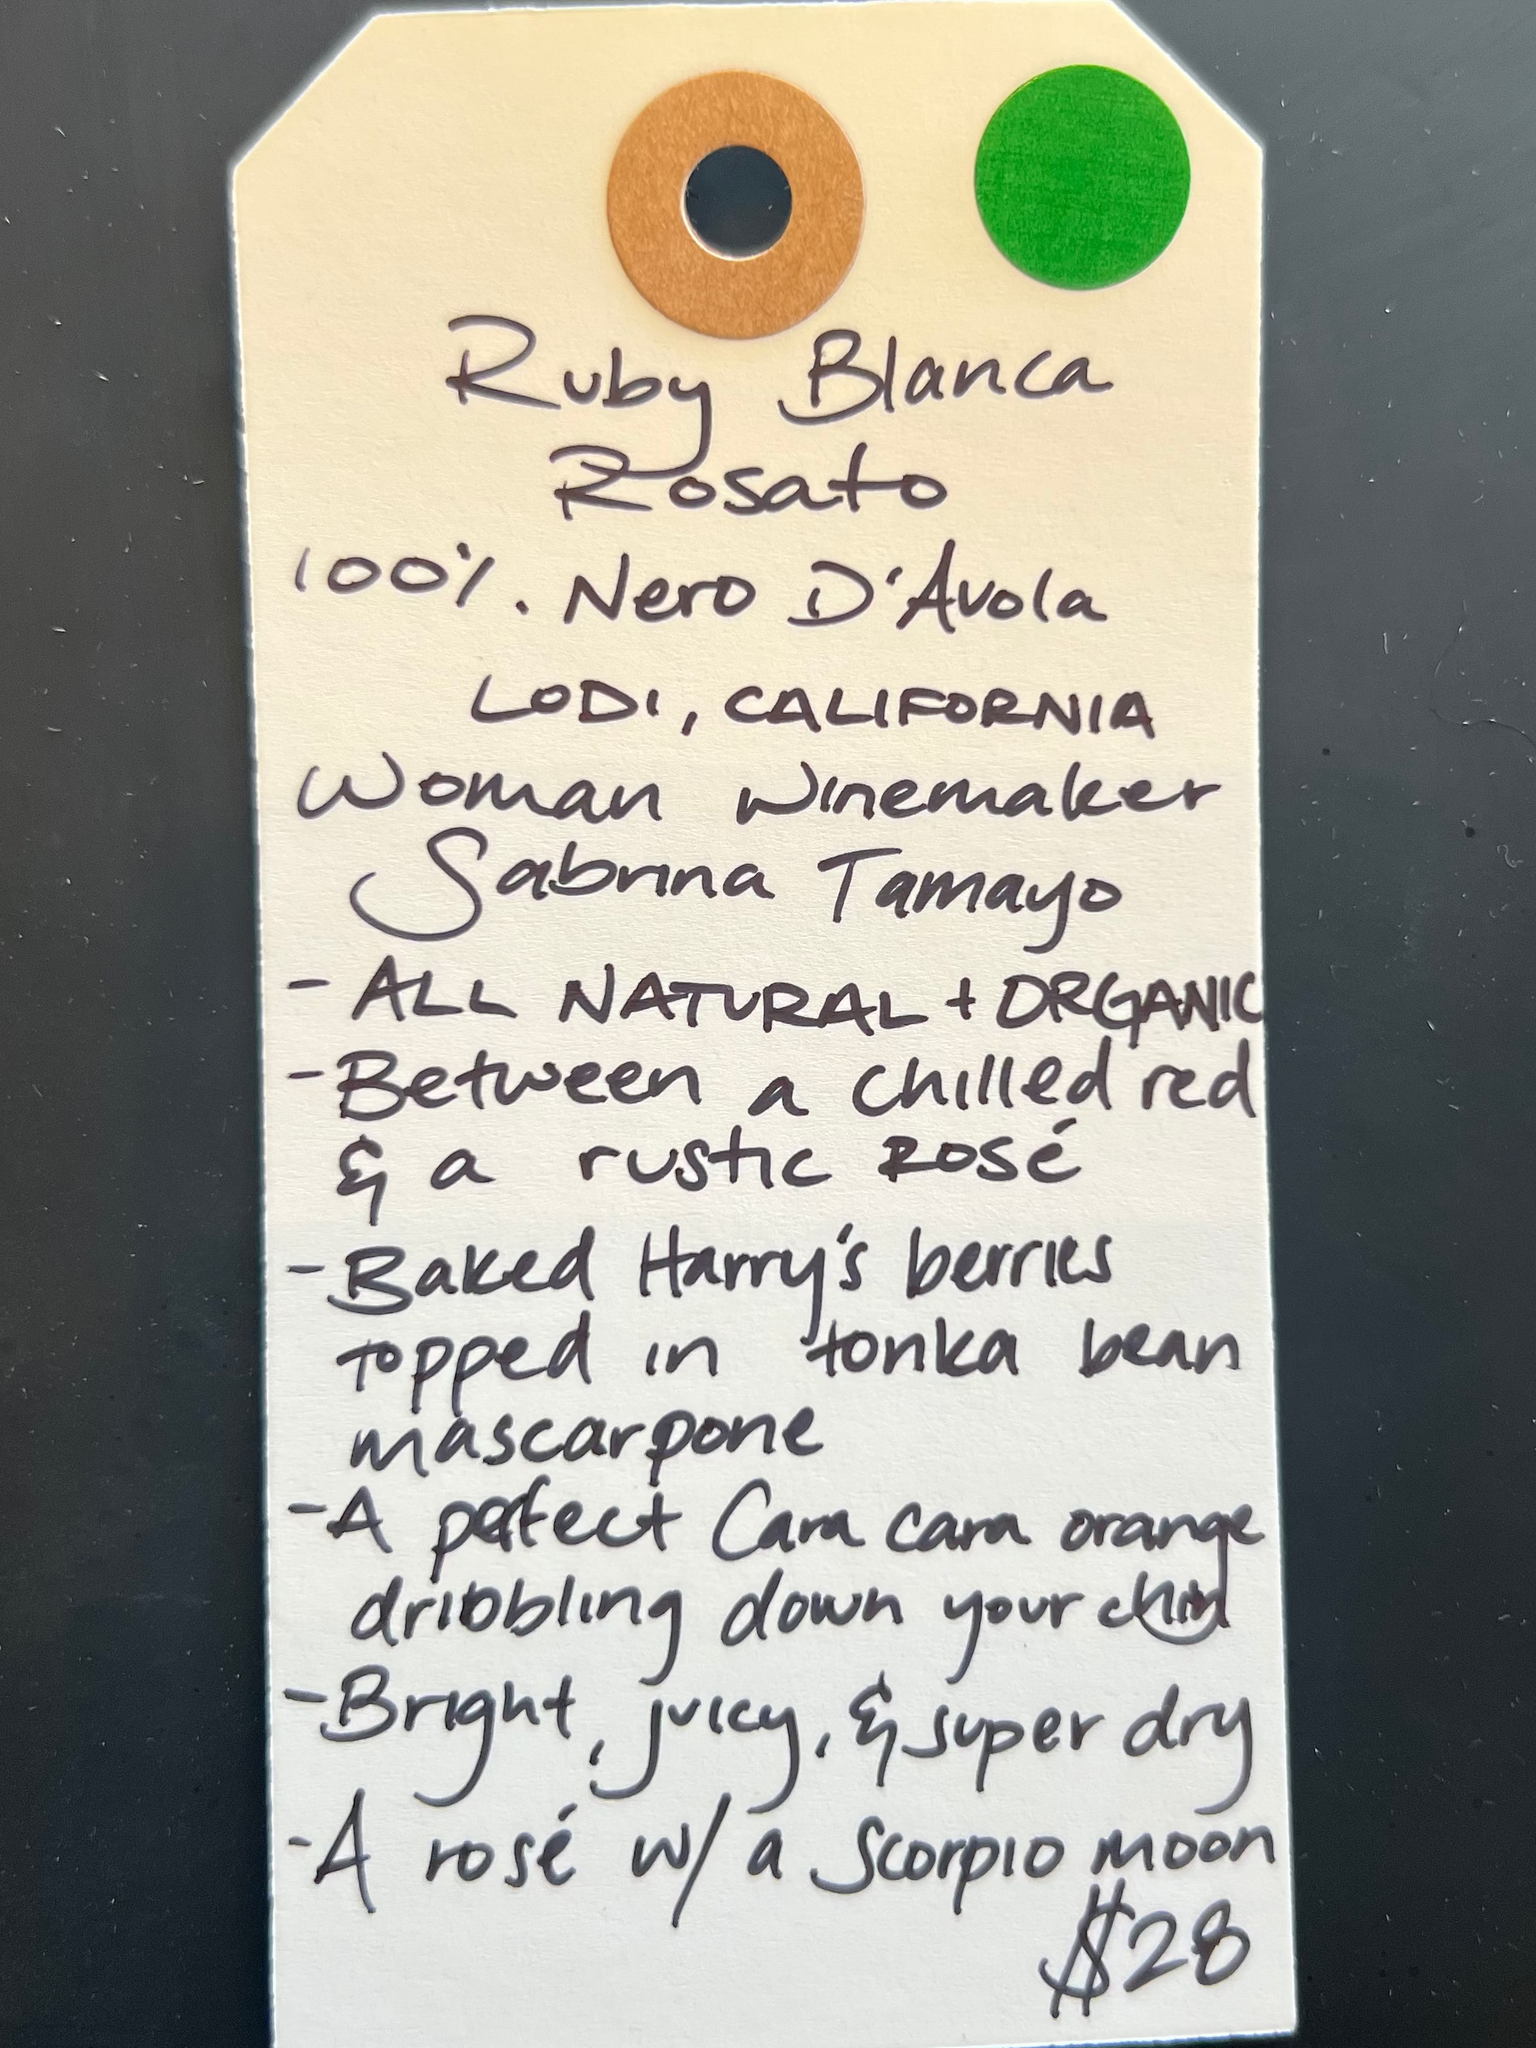 Ruby Blanca
Rosato
100%. Nero D'Avola
LODI, CALIFORNIA
Woman Winemaker
Sabrina Tamayo
- ALL NATURAL + ORGANIC
- Between a chilled red
& a rustic Rosé
- Baked Harry's berries
topped in tonka bean
mascarpone
- A perfect Cara cara orange
dribbling down your chin
- Bright, juicy, & super dry
- A rosé w/ a Scorpio moon
$28